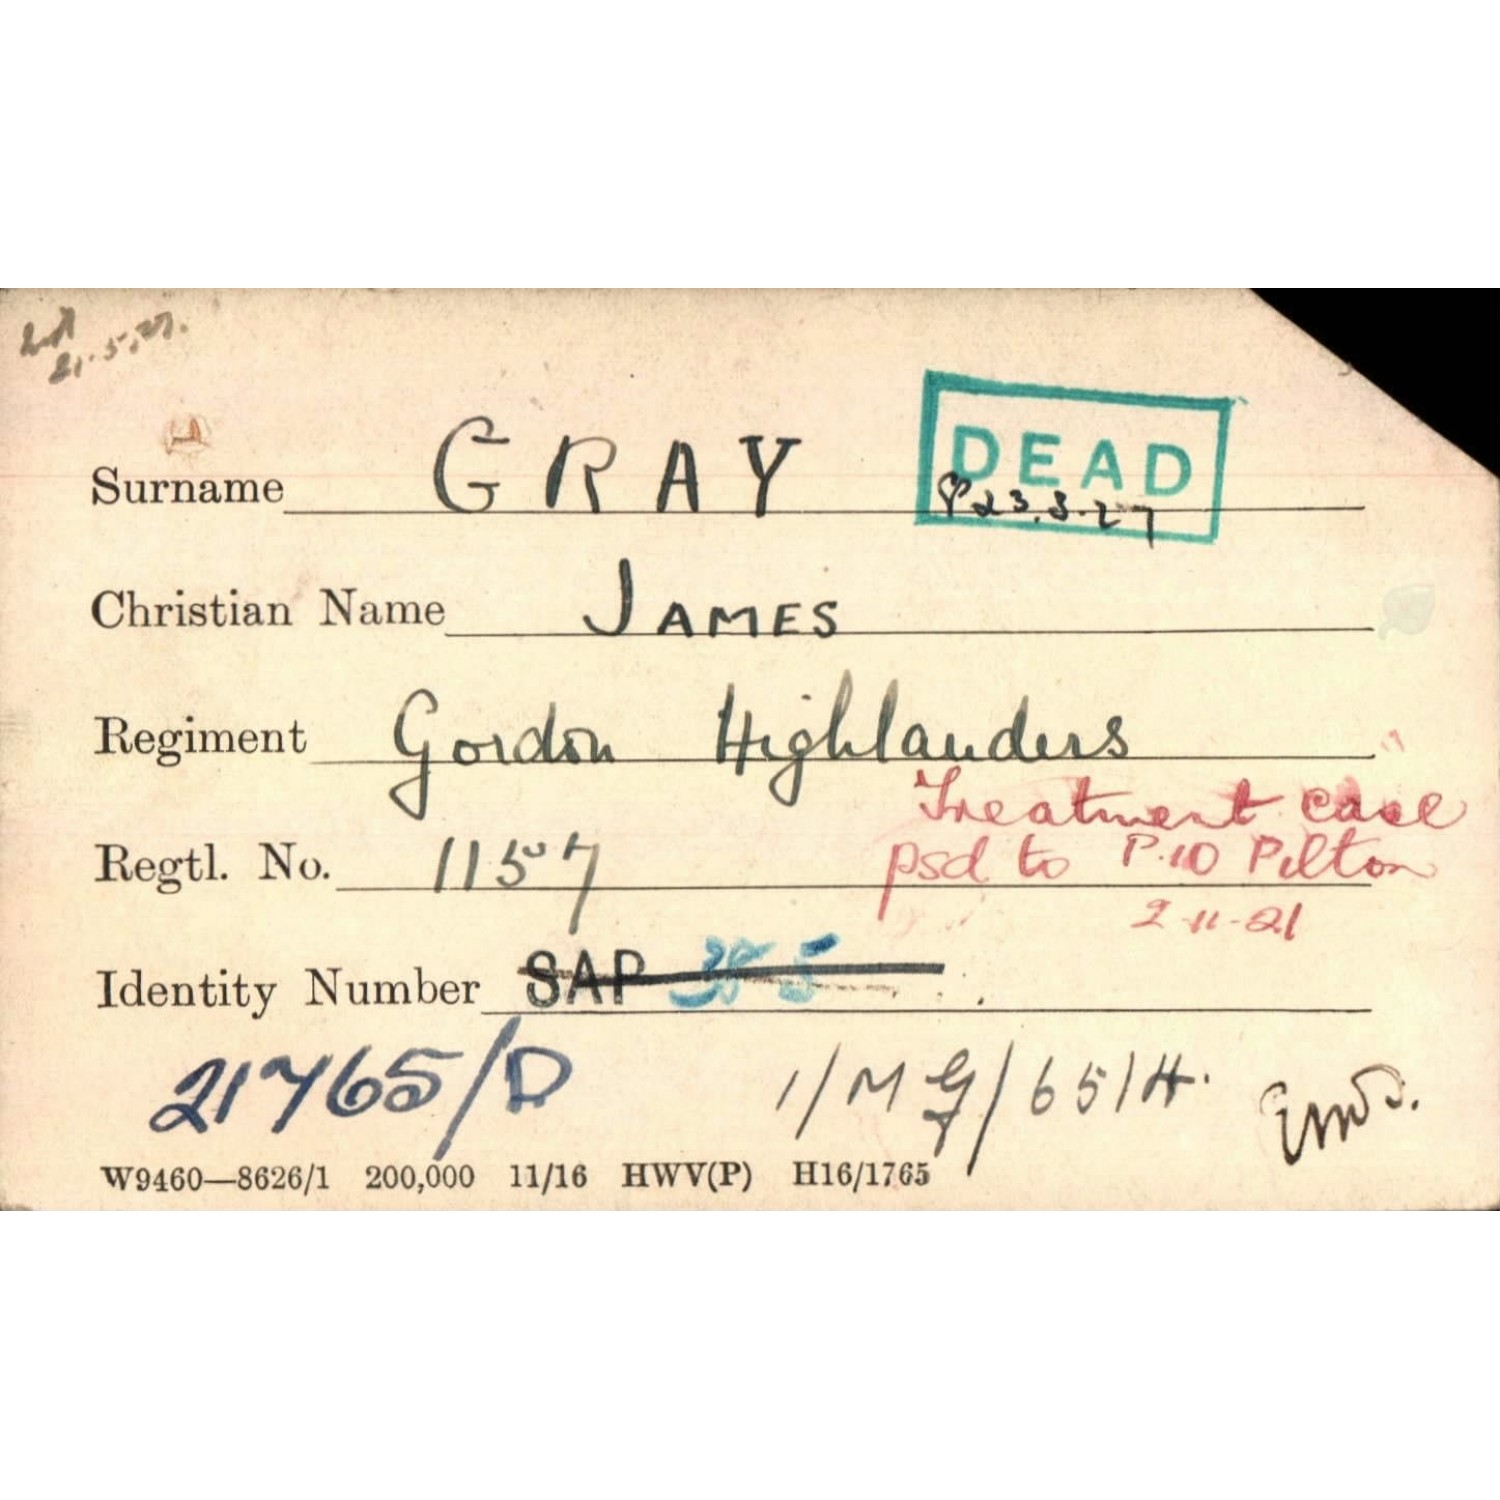 21.5.27.
Surname GRAY
DEAD
23.3.27
Christian Name JAMES
Regiment Gordon Highlanders
Treatment case
Regtl. No. 1157
psd to P.10 Pilton
2-11-21
Identity Number SAP
21765/D 1/MG/651H.
W9460—8626/1 200,000 11/16 HWV(P) H16/1765